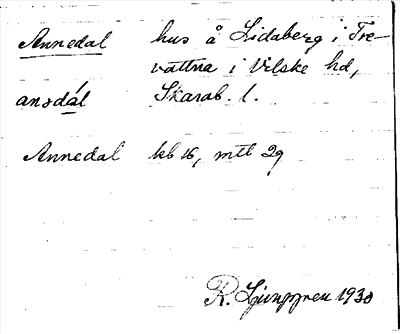 Annedal hus å Lidaberg i Tre-
vattna i Vilske hd,
ansdál Skarab. l.
Annedal kb 16, mtl 29
R. Ljunggren 1930